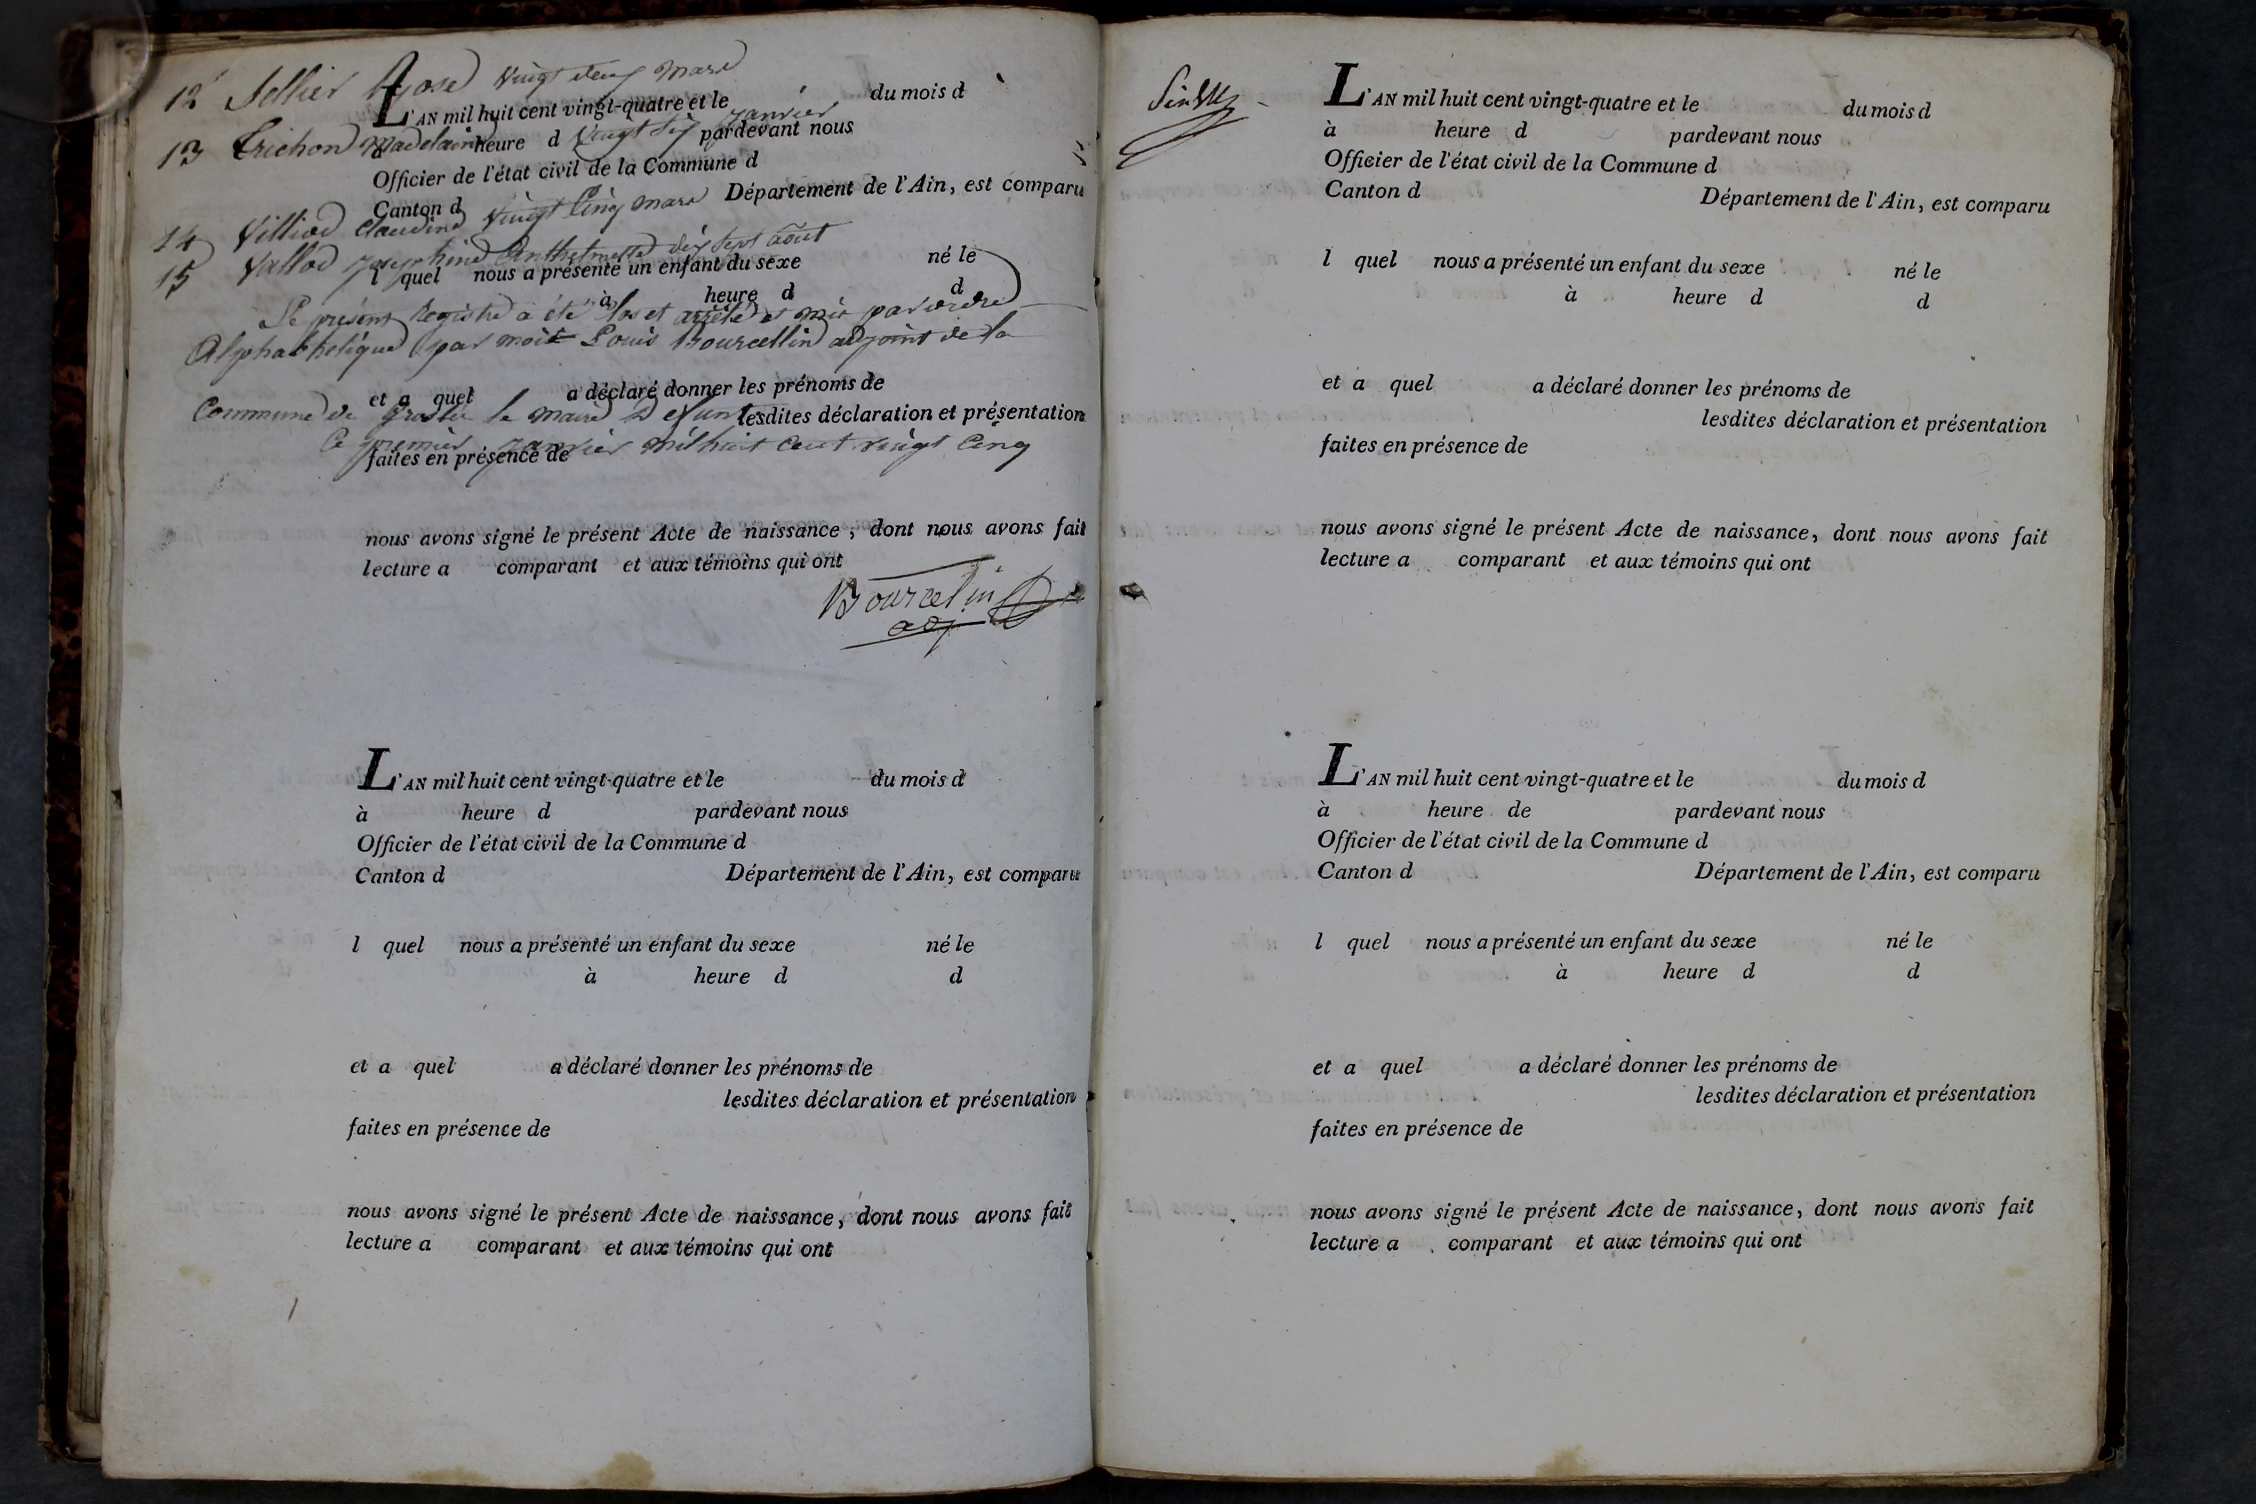 12 Sellier Rose vingt deux mars
L'AN mil huit cent vingt-quatre et le du mois d
13 Trichon Madelaine vingt six janvier
à heure d pardevant nous
Officier de l'état civil de la Commune d
Canton d Département de l'Ain, est comparu
14 Villiod Claudine vingt cinq mars
15 Vallod Josephine Anthelmette dix sept août
l quel nous a présenté un enfant du sexe né le
à heure d d
Le présent Registre a été clos et arrêté et mis par ordre
Alphabhetique par moit Louis Bourcellin adjoint de la
et a quel a déclaré donner les prénoms de
Commune de le maire defunt
lesdites déclaration et présentation
Ce premier janvier mil huit cent vingt cinq
faites en présence de
nous avons signé le présent Acte de naissance, dont nous avons fait
lecture a comparant et aux témoins qui ont
Bourcelin
adj
L'AN mil huit cent vingt-quatre et le du mois d
à heure d pardevant nous
Officier de l'état civil de la Commune d
Canton d Département de l'Ain, est comparu
l quel nous a présenté un enfant du sexe né le
à heure d d
et a quel a déclaré donner les prénoms de
lesdites déclaration et présentation
faites en présence de
nous avons signé le présent Acte de naissance, dont nous avons fait
lecture a comparant et aux témoins qui ont
L'AN mil huit cent vingt-quatre et le du mois d
à heure d pardevant nous
Officier de l'état civil de la Commune d
Canton d Département de l'Ain, est comparu
l quel nous a présenté un enfant du sexe né le
à heure d d
et a quel a déclaré donner les prénoms de
lesdites déclaration et présentation
faites en présence de
nous avons signé le présent Acte de naissance, dont nous avons fait
lecture a comparant et aux témoins qui ont
L'AN mil huit cent vingt-quatre et le du mois d
à heure de pardevant nous
Officier de l'état civil de la Commune d
Canton d Département de l'Ain, est comparu
l quel nous a présenté un enfant du sexe né le
à heure d d
et a quel a déclaré donner les prénoms de
lesdites déclaration et présentation
faites en présence de
nous avons signé le présent Acte de naissance, dont nous avons fait
lecture a comparant et aux témoins qui ont